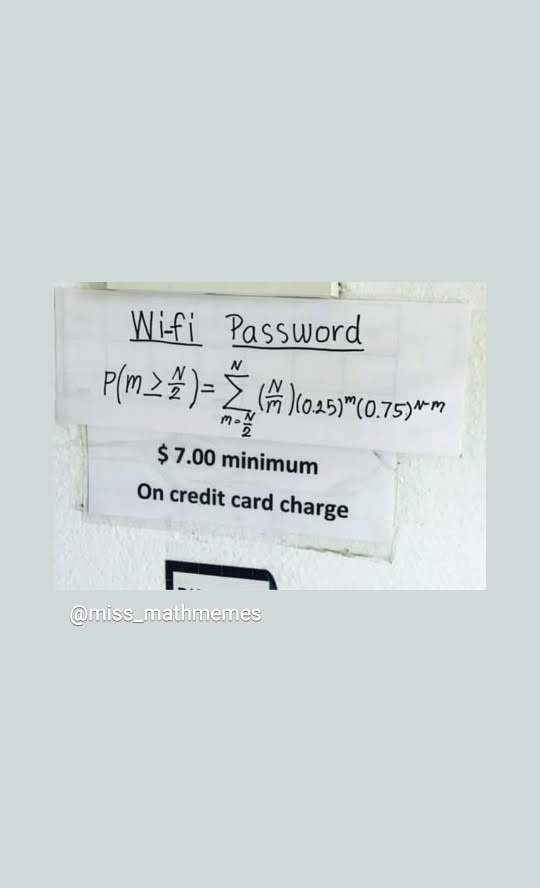 Wi-fi Password
P(m ≥ N/2) = ∑_{m=N/2}^{N} (N/m)(0.25)^m(0.75)^{N-m}
$ 7.00 minimum
On credit card charge
@miss_mathmemes